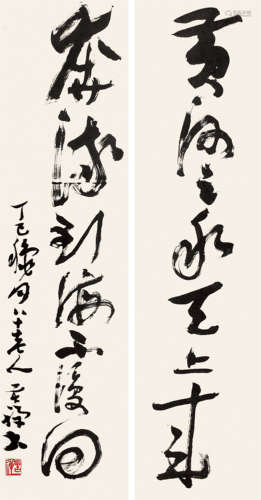 黄河之水天上来
奔流到海不復回
丁巳穐月八十老人